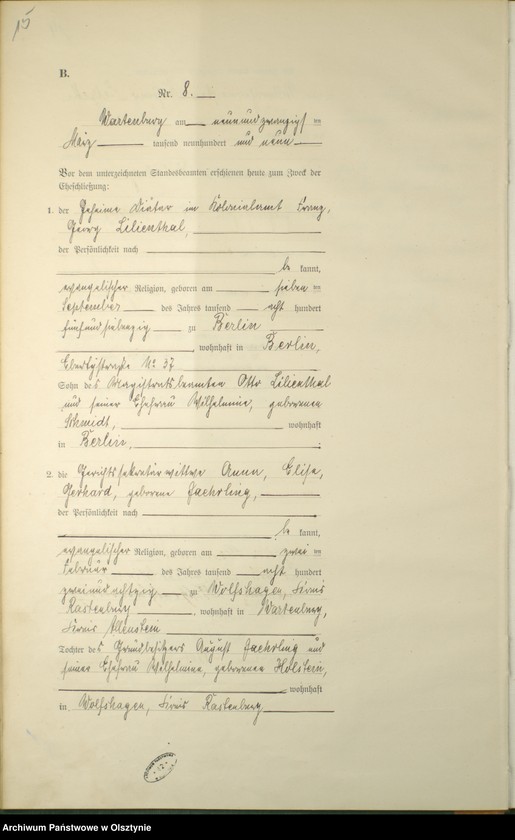 15
B.
Nr. 8.
Wartenburg am neunundzwanzigsten
März tausend neunhundert und neun
Vor dem unterzeichneten Standesbeamten erschienen heute zum Zweck der
Eheschließung:
1. der Geheime Diätar im Kolonialamt Franz,
Georg Lilienthal,
der Persönlichkeit nach
be kannt,
evangelischer Religion, geboren am sieben ten
September des Jahres tausend acht hundert
fünfundsiebzig zu Berlin
, wohnhaft in Berlin,
Ebertystraße No 37
Sohn des Magistratsbeamten Otto Lilienthal
und seiner Ehefrau Wilhelmine, geborenen
Schmidt, wohnhaft
in Berlin, ;
2. die Gerichtssekretärwittwe Anna, Elise,
Gerhard, geborene Faehrling,
der Persönlichkeit nach
be kannt,
evangelischer Religion, geboren am zwei ten
Februar des Jahres tausend acht hundert
zweiundachtzig zu Wolfshagen, Kreis
Rastenburg, wohnhaft in Wartenburg,
Kreis Allenstein
Tochter des Grundbesitzers August Faehrling und
seiner Ehefrau Wilhelmine, geborenen Holstein,
wohnhaft
in Wolfshagen, Kreis Rastenburg
Archiwum Państwowe w Olsztynie